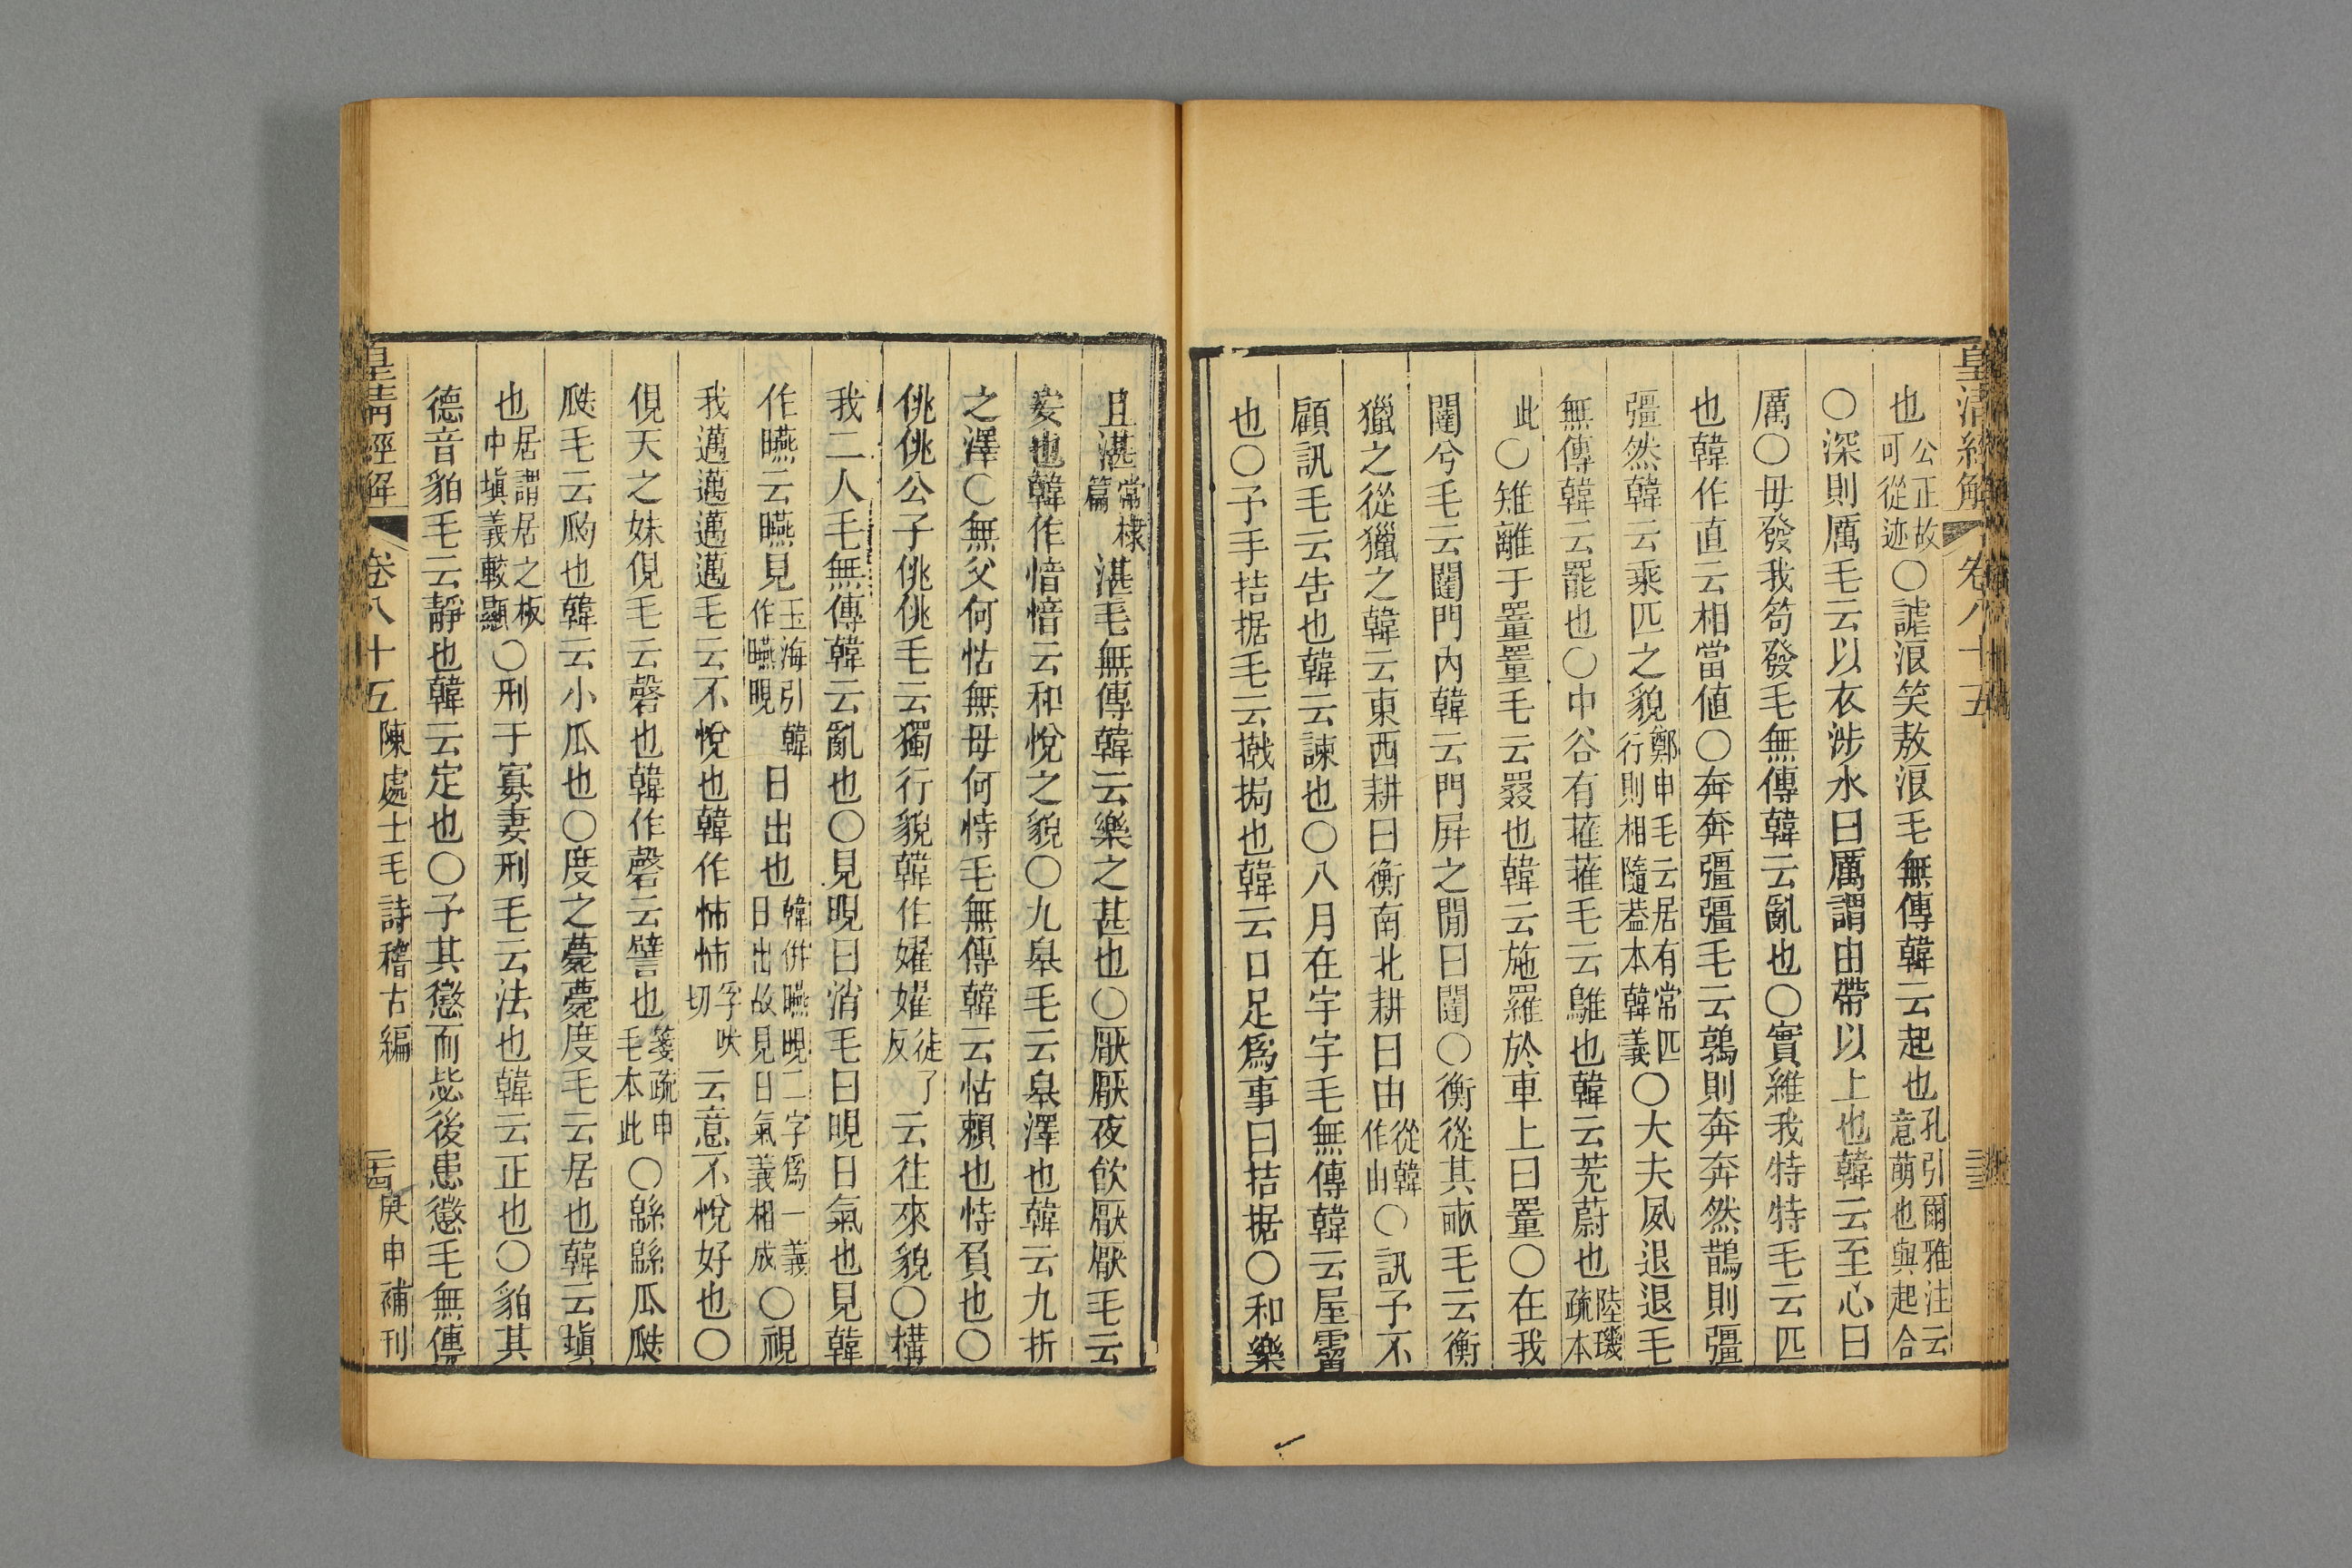 皇清經解 卷八十五
也公正故可從迹〇謔浪笑敖浪毛無傳韓云起也孔引爾雅注云意萌也與起合
〇深則厲毛云以衣涉水曰厲謂由帶以上也韓云至心曰
厲〇毋發我笱發毛無傳韓云亂也〇實維我特特毛云匹
也韓作直云相當值〇奔奔彊彊毛云鶉則奔奔然鵲則彊
彊然韓云乘匹之貌鄭申毛云居有常匹行則相隨葢本韓義〇大夫夙退退毛
無傳韓云罷也〇中谷有蓷蓷毛云鵻也韓云茺蔚也陸璣疏本
此〇雉離于罿罿毛云罬也韓云施羅於車上曰罿〇在我
闥兮毛云闥門內韓云門屏之閒曰闥〇衡從其畝毛云衡
獵之從獵之韓云東西耕曰衡南北耕曰由從韓作由〇訊予不
顧訊毛云吿也韓云諫也〇八月在宇宇毛無傳韓云屋霤
也〇予手拮据毛云撠挶也韓云口足爲事曰拮据〇和樂
且湛常棣篇湛毛無傳韓云樂之甚也〇厭厭夜飮厭厭毛云
安也韓作愔愔云和悅之貌〇九皋毛云皋澤也韓云九折
之澤〇無父何怙無母何恃毛無傳韓云怙賴也恃負也〇
佻佻公子佻佻毛云獨行貌韓作嬥嬥徒了反云往來貌〇構
我二人毛無傳韓云亂也〇見晛曰消毛曰晛日氣也見韓
作曣云曣見玉海引韓作曣晛日出也韓倂曣晛二字爲一義日出故見日氣義相成〇視
我邁邁邁邁毛云不悅也韓作怖怖孚吠切云意不悅好也〇
俔天之妹俔毛云磬也韓作磬云譬也箋疏申毛本此〇緜緜瓜瓞
瓞毛云瓝也韓云小瓜也〇度之薨薨度毛云居也韓云塡
也居謂居之板中塡義較顯〇刑于寡妻刑毛云法也韓云正也〇貊其
德音貊毛云靜也韓云定也〇予其懲而毖後患懲毛無傳
皇淸經解 卷八十五 陳處士毛詩稽古編 庚申補刊